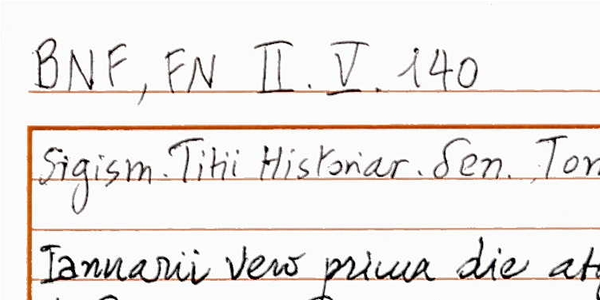 BNF, FN II. V. 140
Sigism. Titii Historiar. Sen. Tom
Ianuarii vero prima die atq